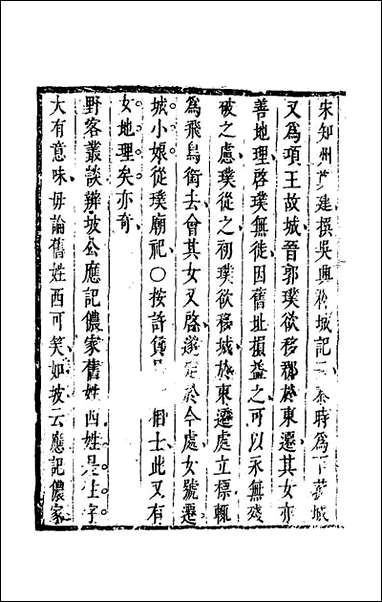 宋知州建撰吳興移城記秦時為下菰城
又為項王故城晉郭璞欲移郡於東遷其女亦
善地理啓璞無徙因舊址損益之可以永無殘
破之慮璞從之初璞欲移城於東遷處立標輒
為飛鳥銜去會其女又啓遂定於今處女號遷
城小娘從璞廟祀〇按許負相士此又有
女地理矣亦奇
野客叢談辨坡公應記儂家舊姓西姓是字
大有意味毋論舊姓西可笑如坡云應記儂家